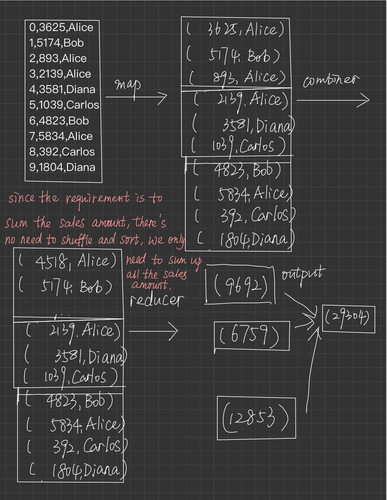 0,3625,Alice
1,5174,Bob
2,893,Alice
3,2139,Alice
4,3581,Diana
5,1039,Carlos
6,4823,Bob
7,5834,Alice
8,392,Carlos
9,1804,Diana
map
( 3625,Alice)
( 5174,Bob)
( 893,Alice)
( 2139,Alice)
( 3581,Diana)
( 1039,Carlos)
( 4823,Bob)
( 5834,Alice)
( 392,Carlos)
( 1804,Diana)
combiner
since the requirement is to
sum the sales amount, there's
no need to shuffle and sort, we only
need to sum up
all the sales
amount.
( 4518,Alice)
( 5174,Bob)
( 2139,Alice)
( 3581,Diana)
( 1039,Carlos)
( 4823,Bob)
( 5834,Alice)
( 392,Carlos)
( 1804,Diana)
reducer
(9692)
(6759)
(12853)
output
(29304)